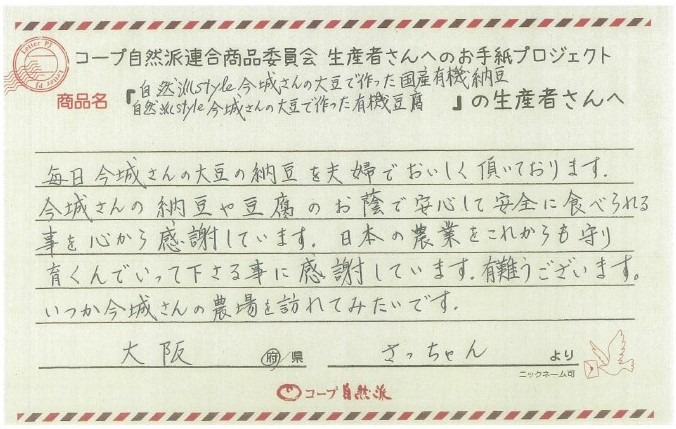 コープ自然派連合商品委員会 生産者さんへのお手紙プロジェクト
自然派style今城さんの大豆で作った国産有機納豆
商品名『自然派style今城さんの大豆で作った有機豆腐』の生産者さんへ
毎日今城さんの大豆の納豆を夫婦でおいしく頂いております。
今城さんの納豆や豆腐のお蔭で安心して安全に食べられる
事を心から感謝しています。日本の農業をこれからも守り
育くんでいって下さる事に感謝しています。有難うございます。
いつか今城さんの農場を訪れてみたいです。
大阪 府/県 さっちゃん より
ニックネーム可
コープ自然派